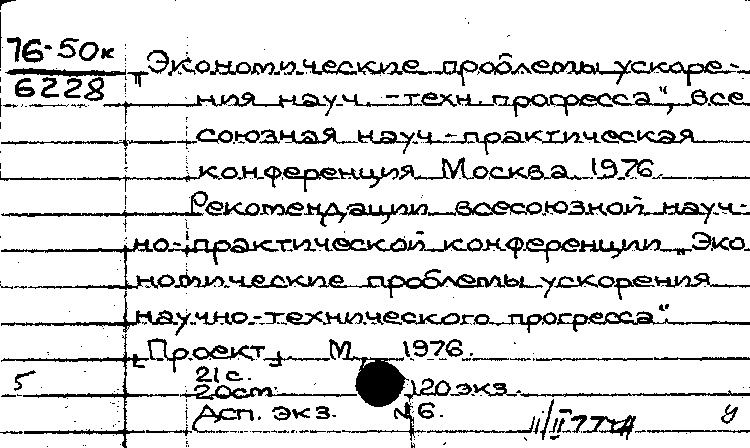 76-50к
6228
„Экономические проблемы ускоре-
ния науч.-техн. прогресса“, все
союзная науч-практическая
конференция Москва 1976.
Рекомендации всесоюзной науч-
но-практической конференции „Эко
номические проблемы ускорения
научно-технического прогресса“.
[Проект] М., 1976.
21 с.
5 20 см 120 экз.
Дсп. экз. №6.
у